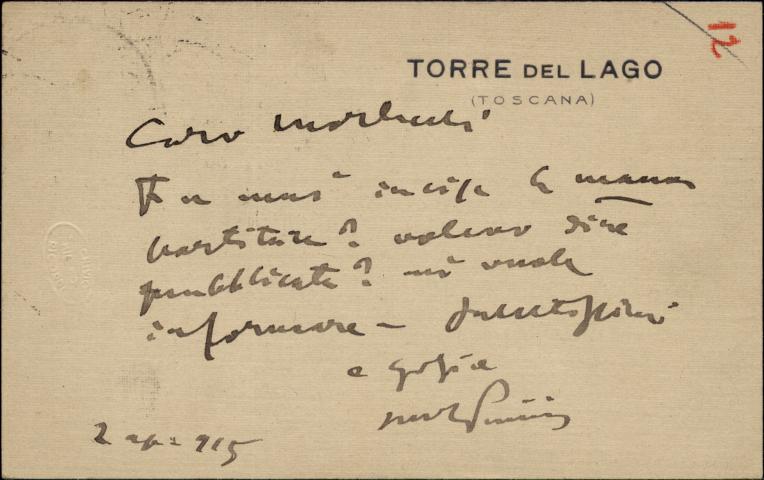 12
TORRE DEL LAGO
(TOSCANA)
Caro
Fu mai incisa la
partitura? volevo dire
pubblicata? mi vuole
informare –
e grazie
Puccini
2 ap = 915